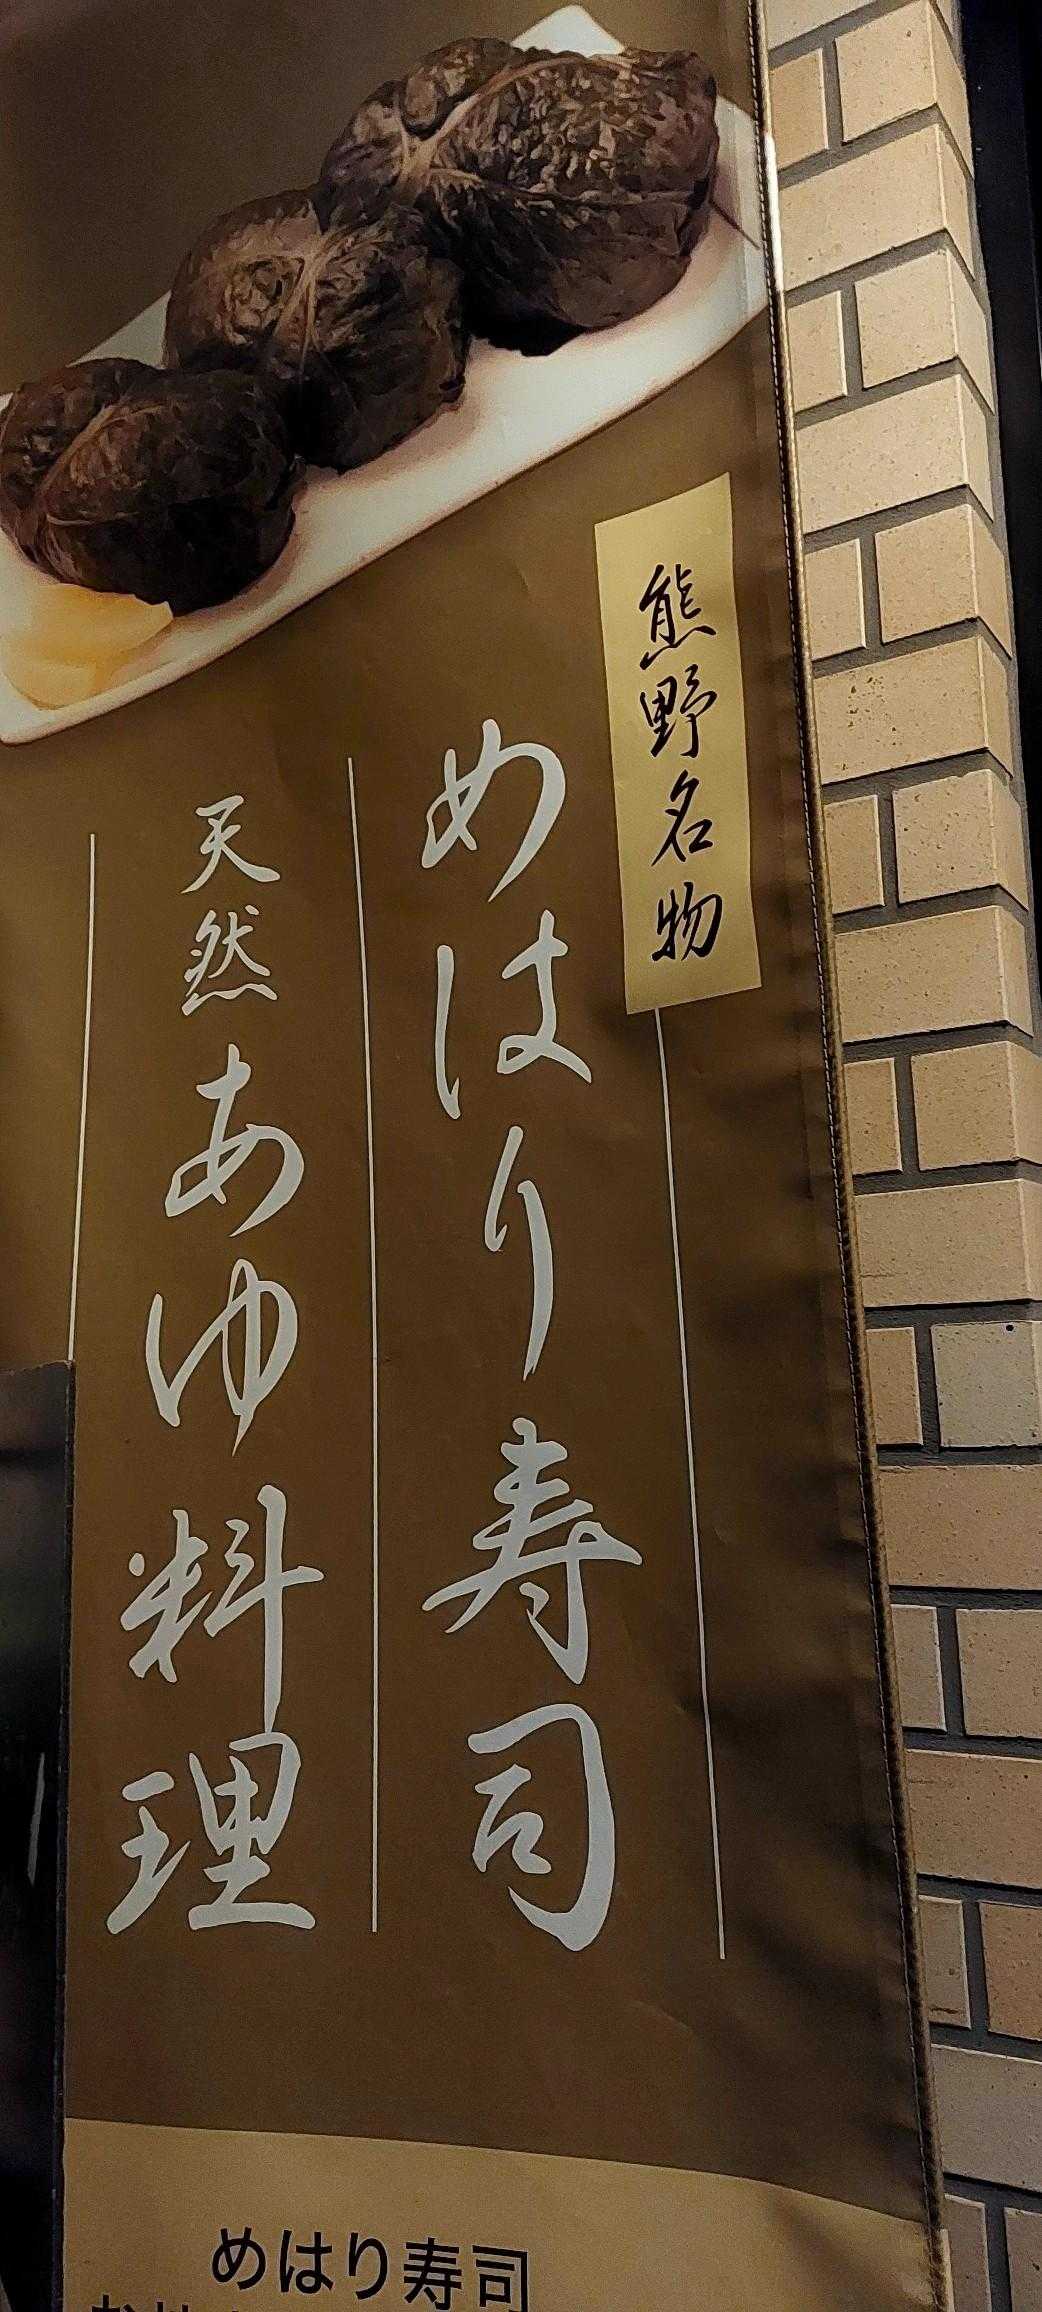 熊野名物
めはり寿司
天然あゆ料理
めはり寿司